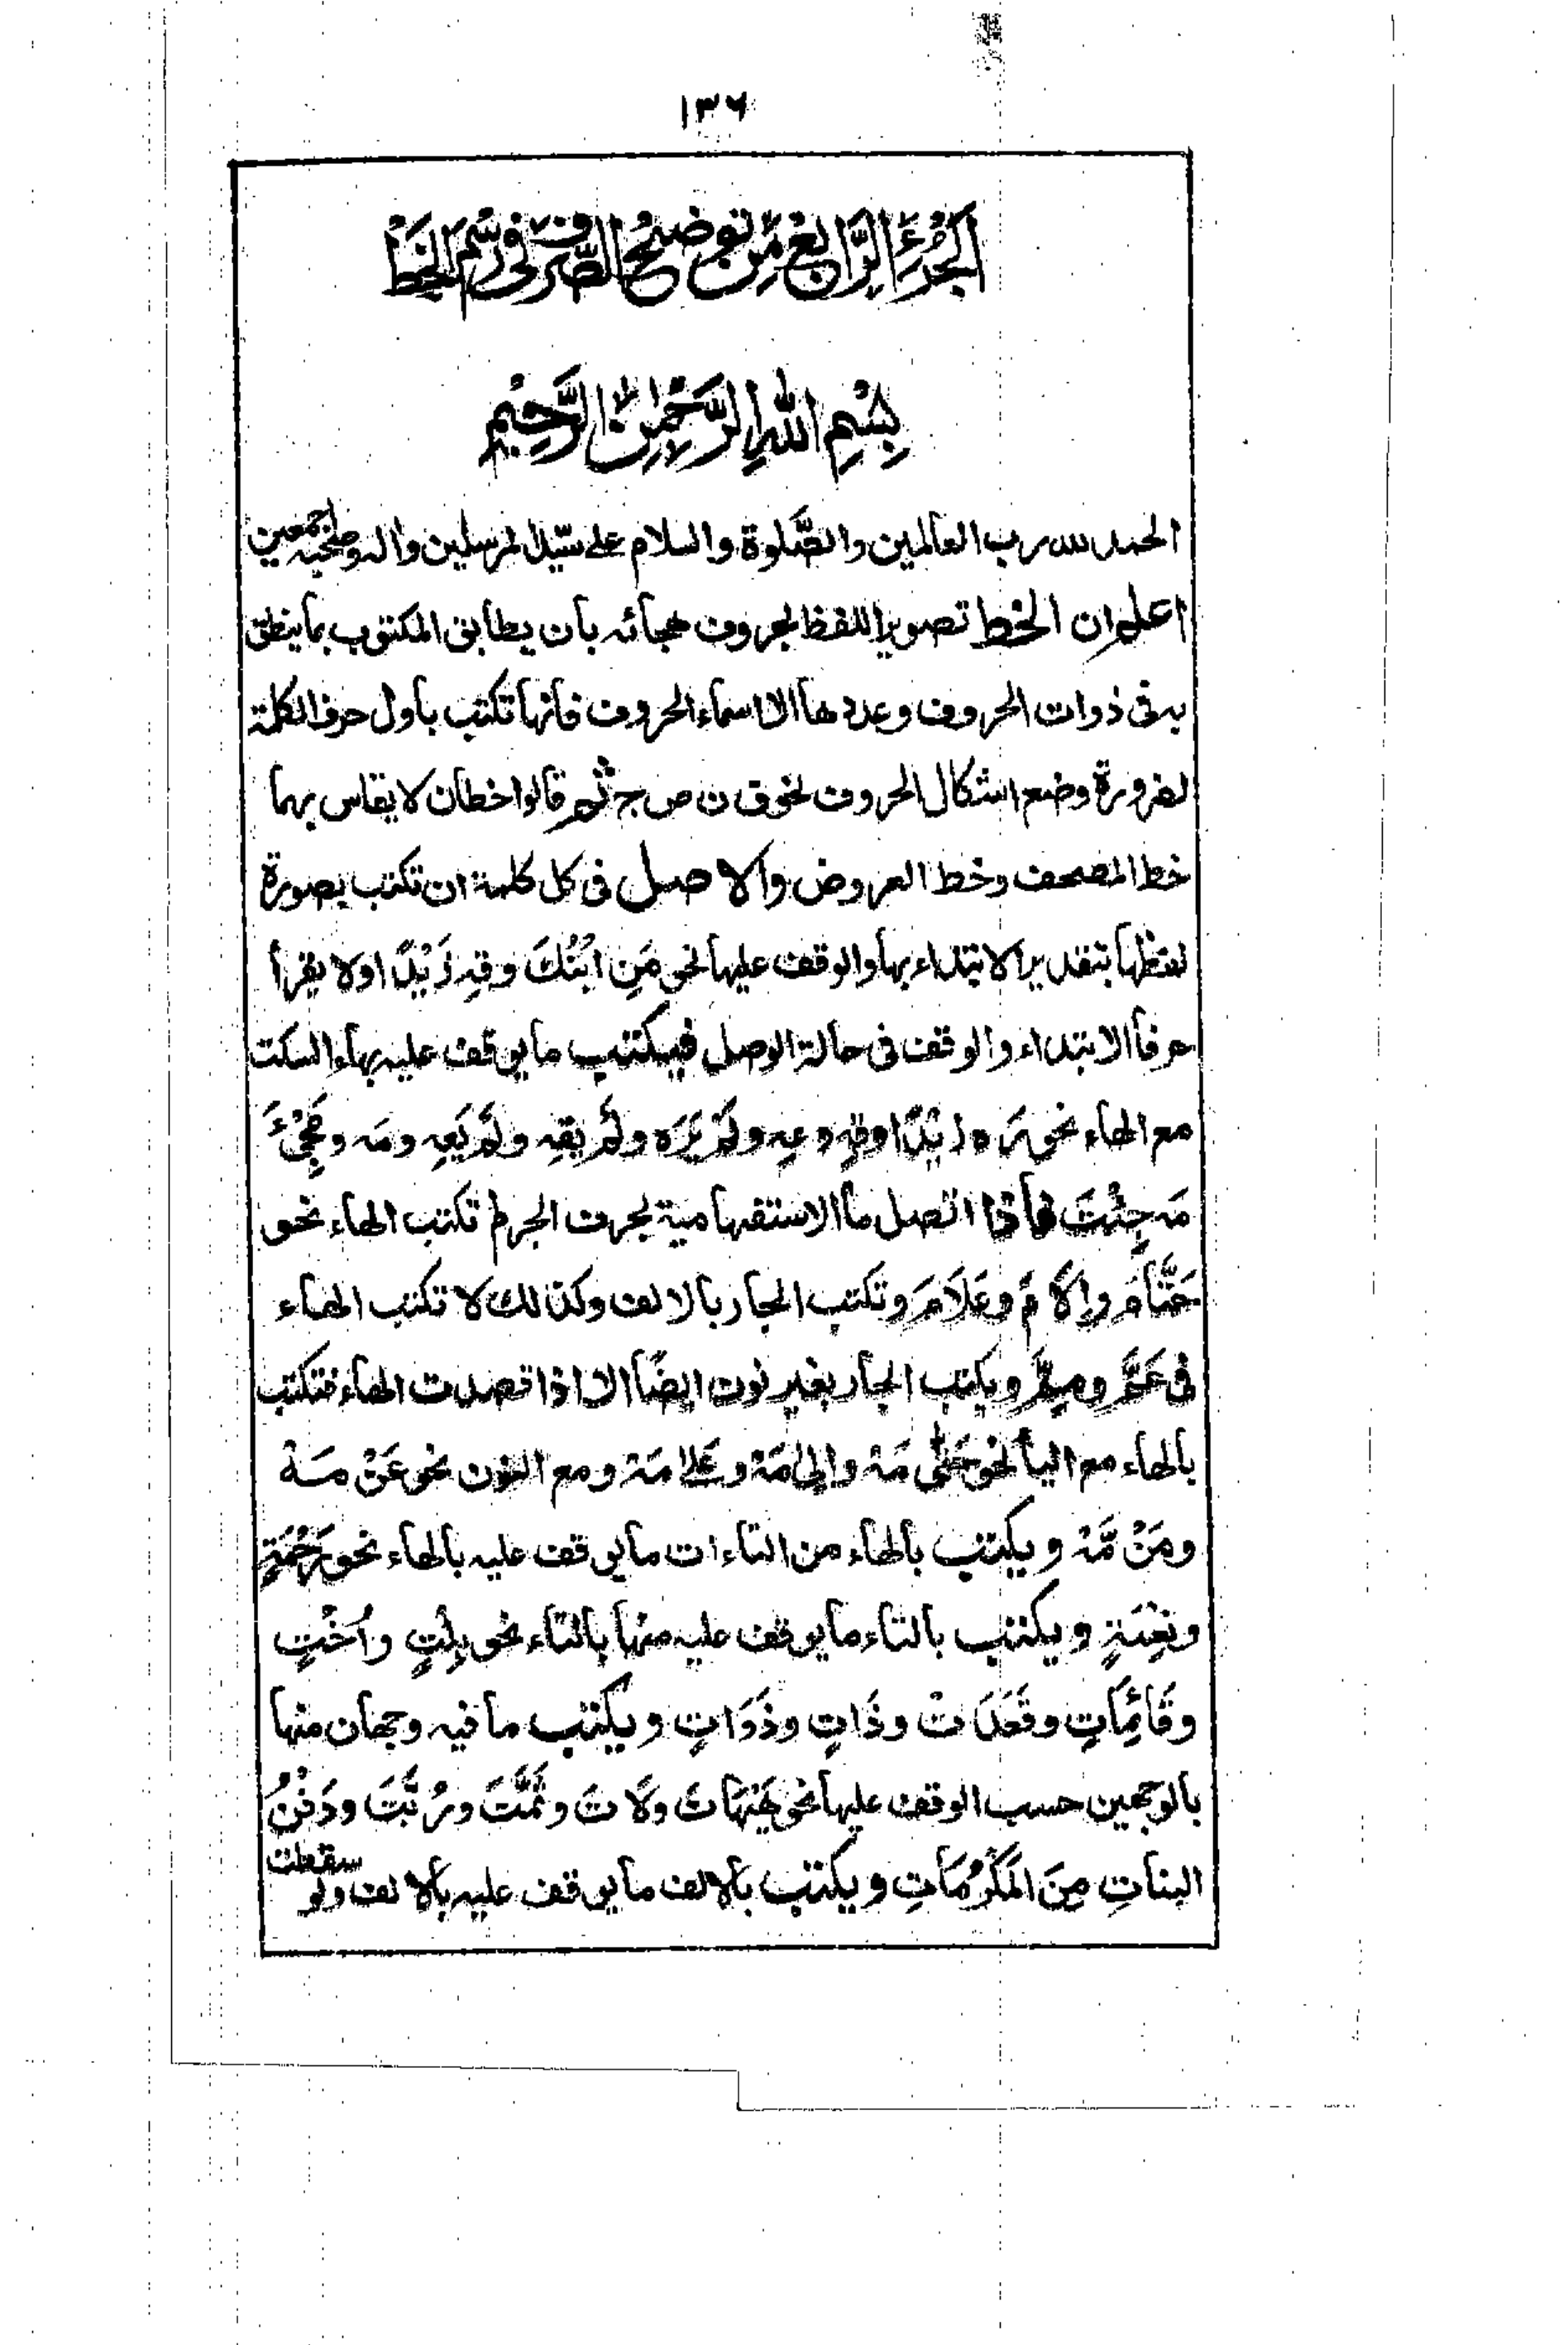 ۱۳۶
اَلْجُزْءُ الرَّابِعُ مِّنْ توضیح الصَّرف فی رسْمِ الْخَطِّ
بِسْمِ اللهِ الرَّحْمٰنِ الرَّحِيْمِ
الحمد لله رب العالمين والصَّلوة والسلام على سيّد المرسلين واله وصحبه اجمعين
اعلم ان الخط تصوير اللفظ بحروف هجائه بان يطابق المكتوب بما ينطق
به فى ذوات الحروف وعددها الا اسماء الحروف فانها تكتب باول حرف الكلمة
لضرورة وضع اشكال الحروف نحو ق ن ص ج ثم قالوا خطان لا يقاس بهما
خط المصحف وخط العروض والاصل فى كل كلمة ان تكتب بصورة
لفظها بتقدير الابتداء بها والوقف عليها نحو مَنِ ابْنُكَ وقِهِ زَيْدًا ولا يقرأ
حرفا الابتداء والوقف فى حالة الوصل فيكتب ما يوقف عليه بهاء السكت
مع الهاء نحو رَه زيْدًا وقِه وعِه ولَمْ يَرَه ولَمْ يقِه ولَمْ يَعِه ومَه ومَجِيْءَ
مَه جِئْتَ فاذا اتصل ما الاستفهامية بحرف الجر لم تكتب الهاء نحو
حَتَّامَ وإلَامَ وعَلَامَ وتكتب الجار بالالف وكذلك لا تكتب الهاء
فى عَمَّ ومِمَّ ويكتب الجار بغير نون ايضًا الا اذا قصدت الهاء فتكتب
بالهاء مع اليا نحو حَتّٰى مَهْ وإلى مَهْ وعَلىٰ مَهْ ومع النون نحو عَنْ مَهْ
ومَنْ مَّهْ ويكتب بالهاء من التاءات ما يوقف عليه بالهاء نحو رَحْمَةٍ
ونِعْمَةٍ ويكتب بالتاء ما يوقف عليه منها بالتاء نحو بِنْتٍ واُخْتٍ
وقَائِمَاتٍ وقَعَدَتْ وذَاتٍ وذَوَاتٍ ويكتب ما فيه وجهان منها
بالوجهين حسب الوقف عليها نحو هَيْهَاتَ ولَاتَ وثَمَّتَ ورُبَّتَ ودَفْنُ
البنَاتِ مِنَ الْمَكْرُمَاتِ ويكتب بالالف ما يوقف عليه بالالف ولو سقطت